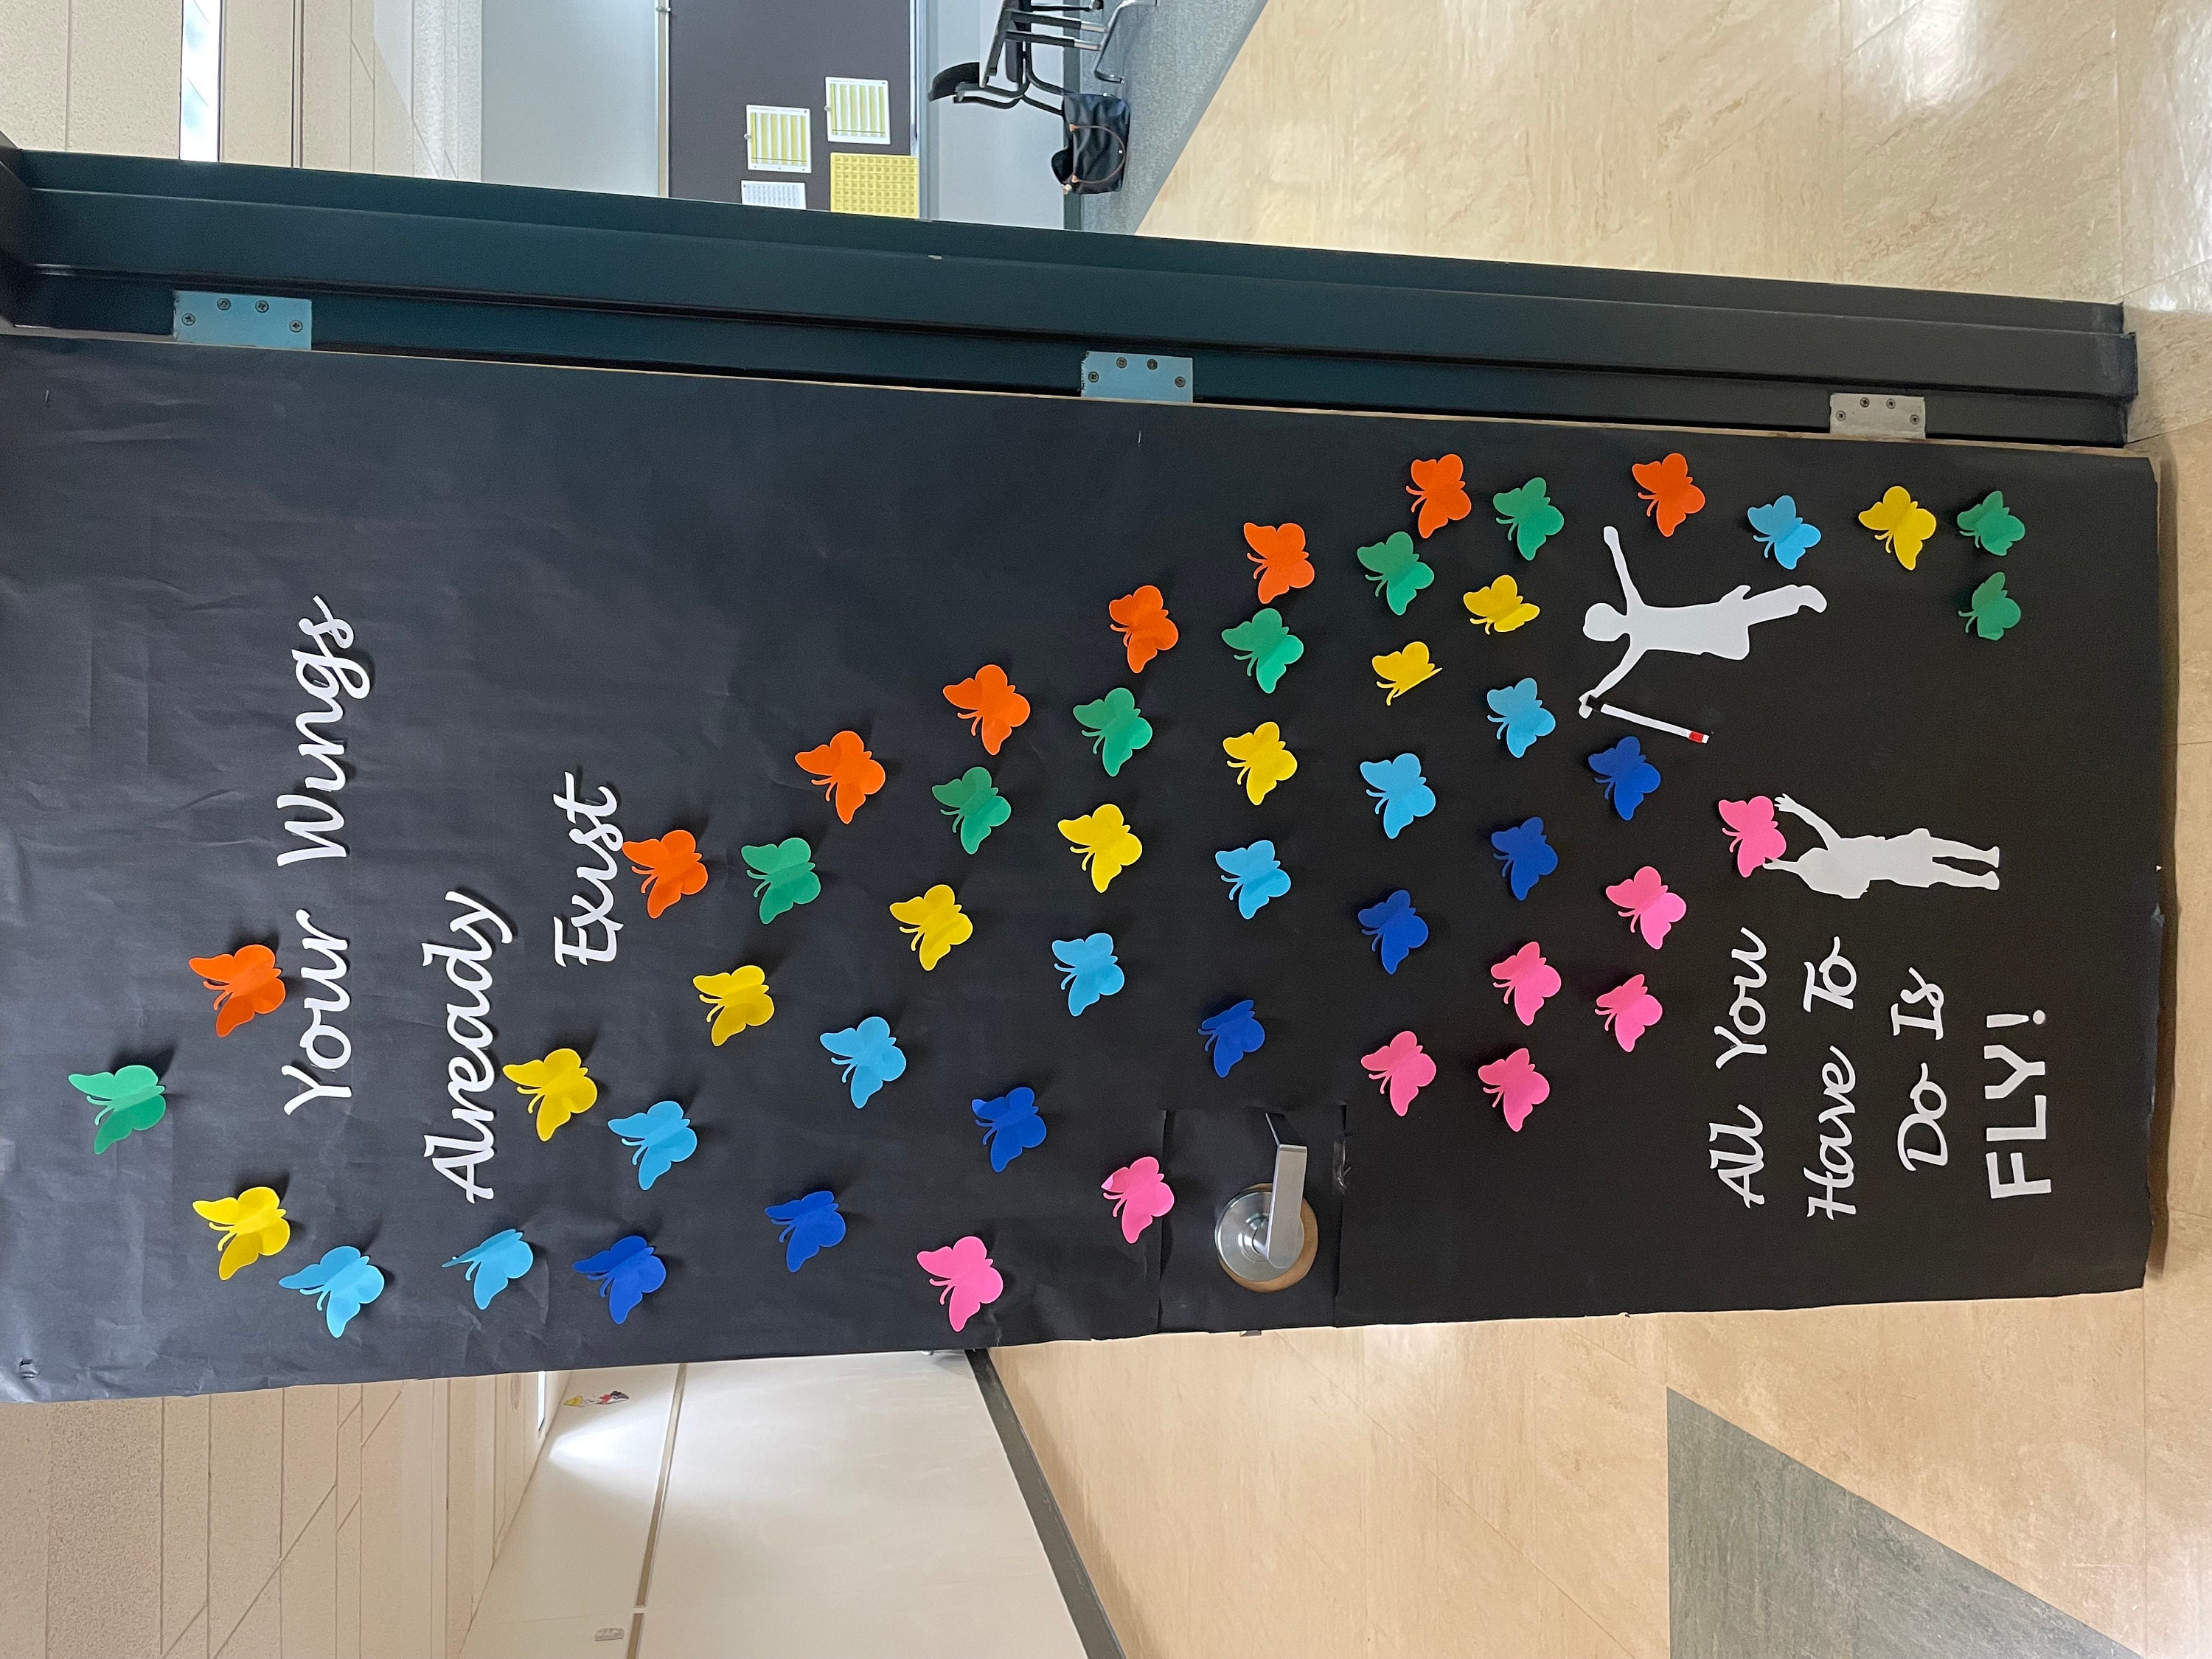 Your Wings
Already
Exist
All You
Have To
Do Is
FLY!